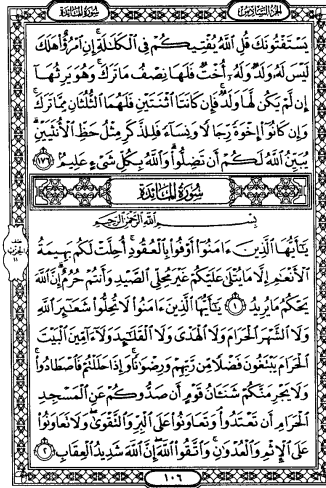 الجزء السادس سورة المائدة
يَسْتَفْتُونَكَ قُلِ اللَّهُ يُفْتِيكُمْ فِي الْكَلَالَةِ إِنِ امْرُؤٌا هَلَكَ
لَيْسَ لَهُ وَلَدٌ وَلَهُ أُخْتٌ فَلَهَا نِصْفُ مَا تَرَكَ وَهُوَ يَرِثُهَا
إِن لَّمْ يَكُن لَّهَا وَلَدٌ فَإِن كَانَتَا اثْنَتَيْنِ فَلَهُمَا الثُّلُثَانِ مِمَّا تَرَكَ
وَإِن كَانُوا إِخْوَةً رِّجَالًا وَنِسَاءً فَلِلذَّكَرِ مِثْلُ حَظِّ الْأُنثَيَيْنِ
يُبَيِّنُ اللَّهُ لَكُمْ أَن تَضِلُّوا وَاللَّهُ بِكُلِّ شَيْءٍ عَلِيمٌ ١٧٦
سورة المائدة
بِسْمِ اللَّهِ الرَّحْمَٰنِ الرَّحِيمِ
يَٰأَيُّهَا الَّذِينَ ءَامَنُوا أَوْفُوا بِالْعُقُودِ أُحِلَّتْ لَكُم بَهِيمَةُ
الْأَنْعَٰمِ إِلَّا مَا يُتْلَىٰ عَلَيْكُمْ غَيْرَ مُحِلِّي الصَّيْدِ وَأَنتُمْ حُرُمٌ إِنَّ اللَّهَ
يَحْكُمُ مَا يُرِيدُ ١ يَٰأَيُّهَا الَّذِينَ ءَامَنُوا لَا تُحِلُّوا شَعَٰئِرَ اللَّهِ
وَلَا الشَّهْرَ الْحَرَامَ وَلَا الْهَدْيَ وَلَا الْقَلَٰئِدَ وَلَا ءَامِّينَ الْبَيْتَ
الْحَرَامَ يَبْتَغُونَ فَضْلًا مِّن رَّبِّهِمْ وَرِضْوَٰنًا وَإِذَا حَلَلْتُمْ فَاصْطَادُوا
وَلَا يَجْرِمَنَّكُمْ شَنَـَٔانُ قَوْمٍ أَن صَدُّوكُمْ عَنِ الْمَسْجِدِ
الْحَرَامِ أَن تَعْتَدُوا وَتَعَاوَنُوا عَلَى الْبِرِّ وَالتَّقْوَىٰ وَلَا تَعَاوَنُوا
عَلَى الْإِثْمِ وَالْعُدْوَٰنِ وَاتَّقُوا اللَّهَ إِنَّ اللَّهَ شَدِيدُ الْعِقَابِ ٢
١٠٦